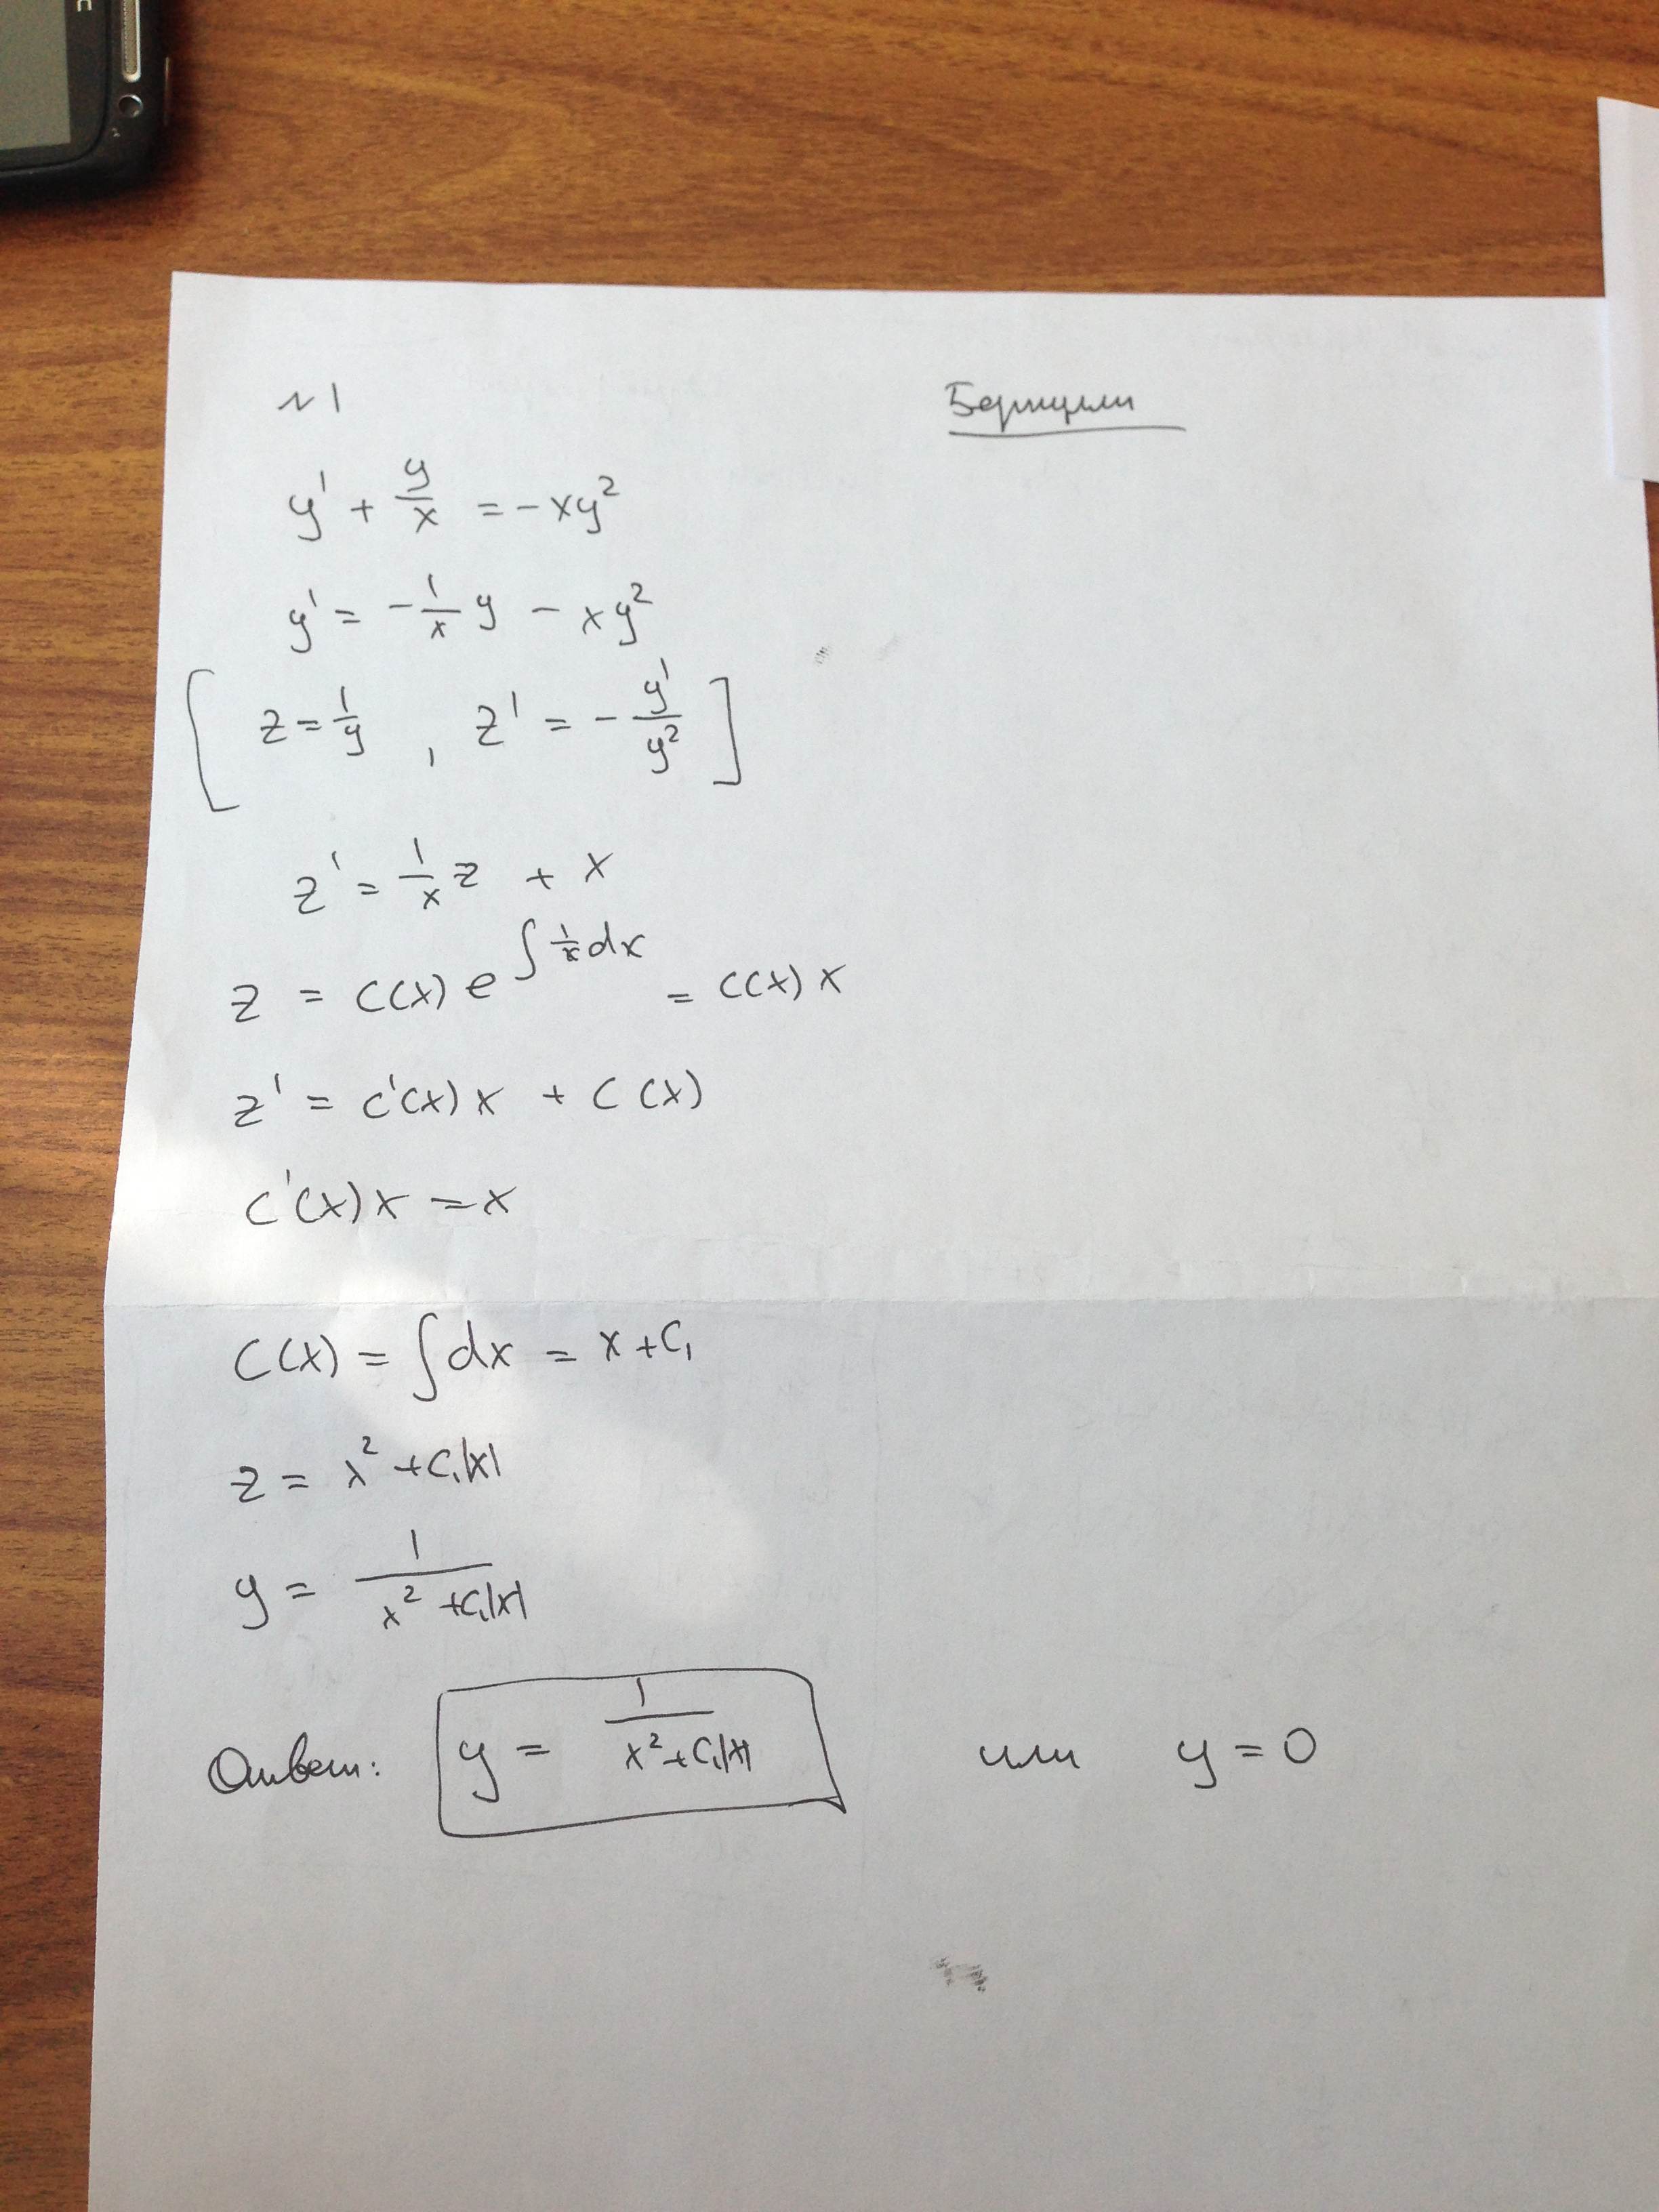 №1 Бернулли
y' + y/x = -xy²
y' = -1/x y - xy²
[ z = 1/y , z' = - y'/y² ]
z' = 1/x z + x
z = C(x) e^∫ 1/x dx = C(x) x
z' = C'(x) x + C(x)
C'(x) x = x
C(x) = ∫ dx = x + C₁
z = x² + C₁|x|
y = 1/(x² + C₁|x|)
Ответ: y = 1/(x² + C₁|x|) или y = 0